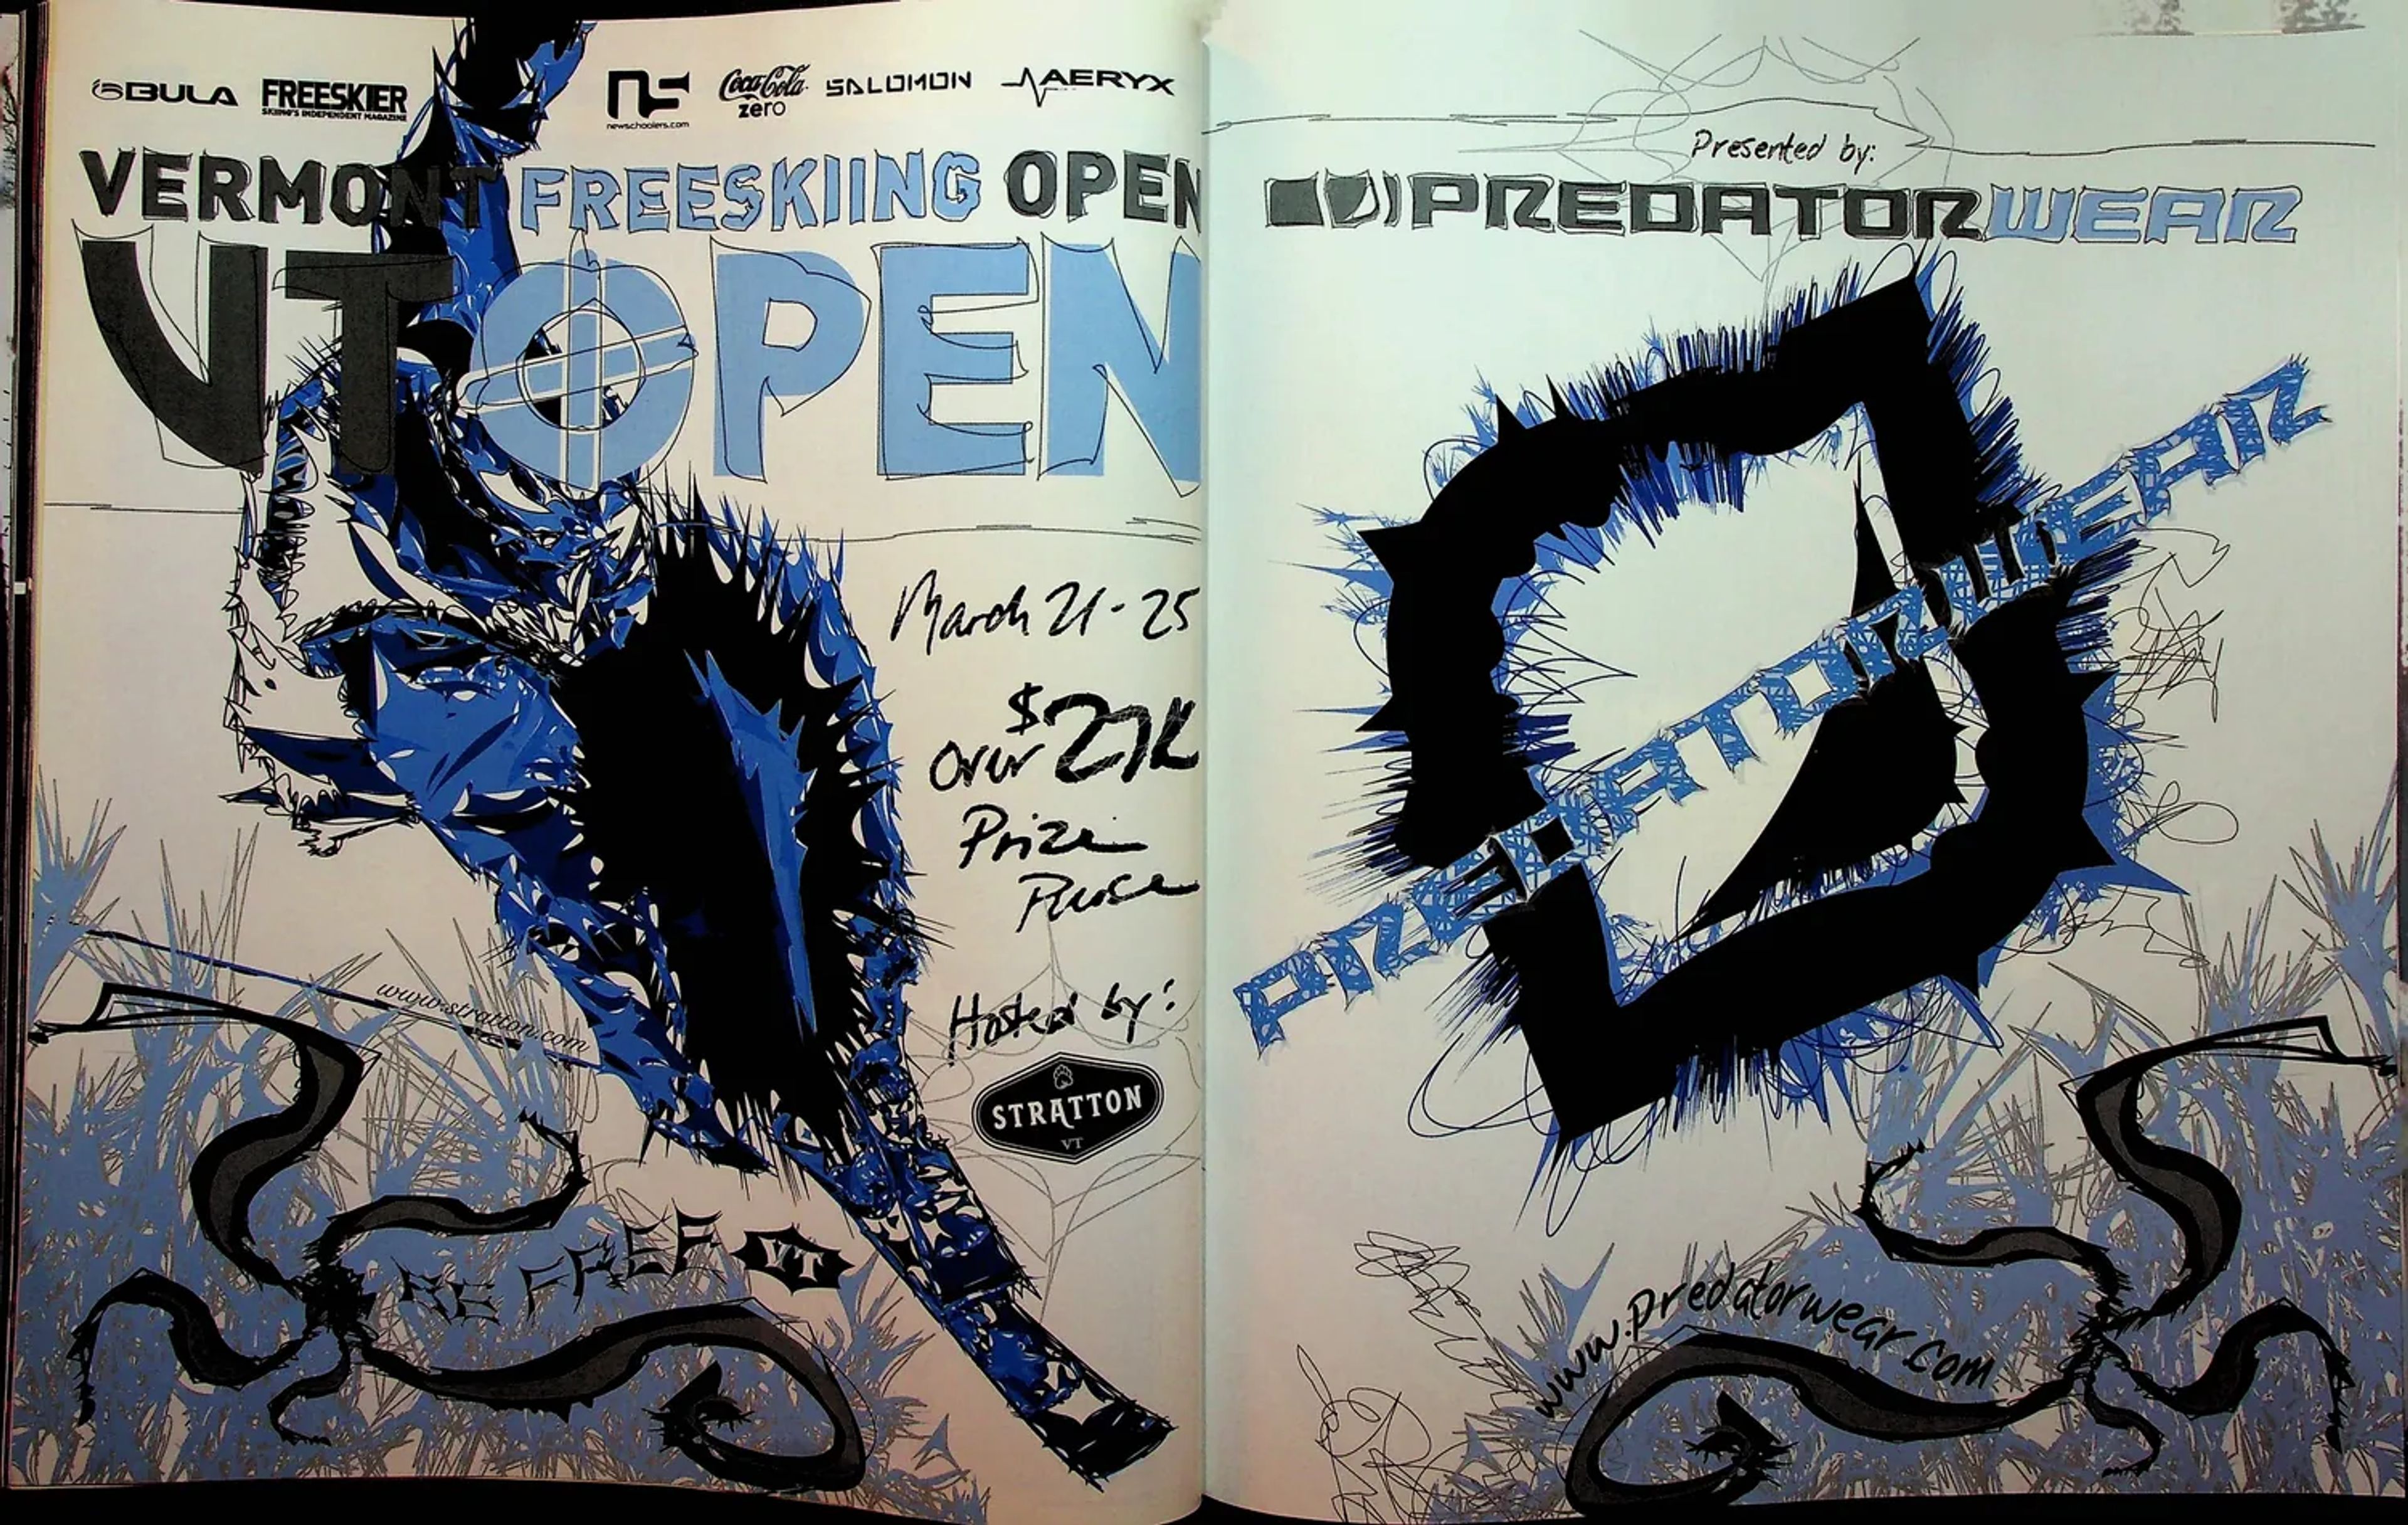 BULA
FREESKIER
SKIING'S INDEPENDENT MAGAZINE
NS
newschoolers.com
Coca-Cola
zero
SALOMON
AERYX
VERMONT FREESKIING OPEN
VT OPEN
March 21 - 25
$
over 27K
Prize
Purse
www.stratton.com
Hosted by:
STRATTON
VT
BE FREE VT
Presented by:
PREDATORWEAR
PREDATORWEAR
www.predatorwear.com